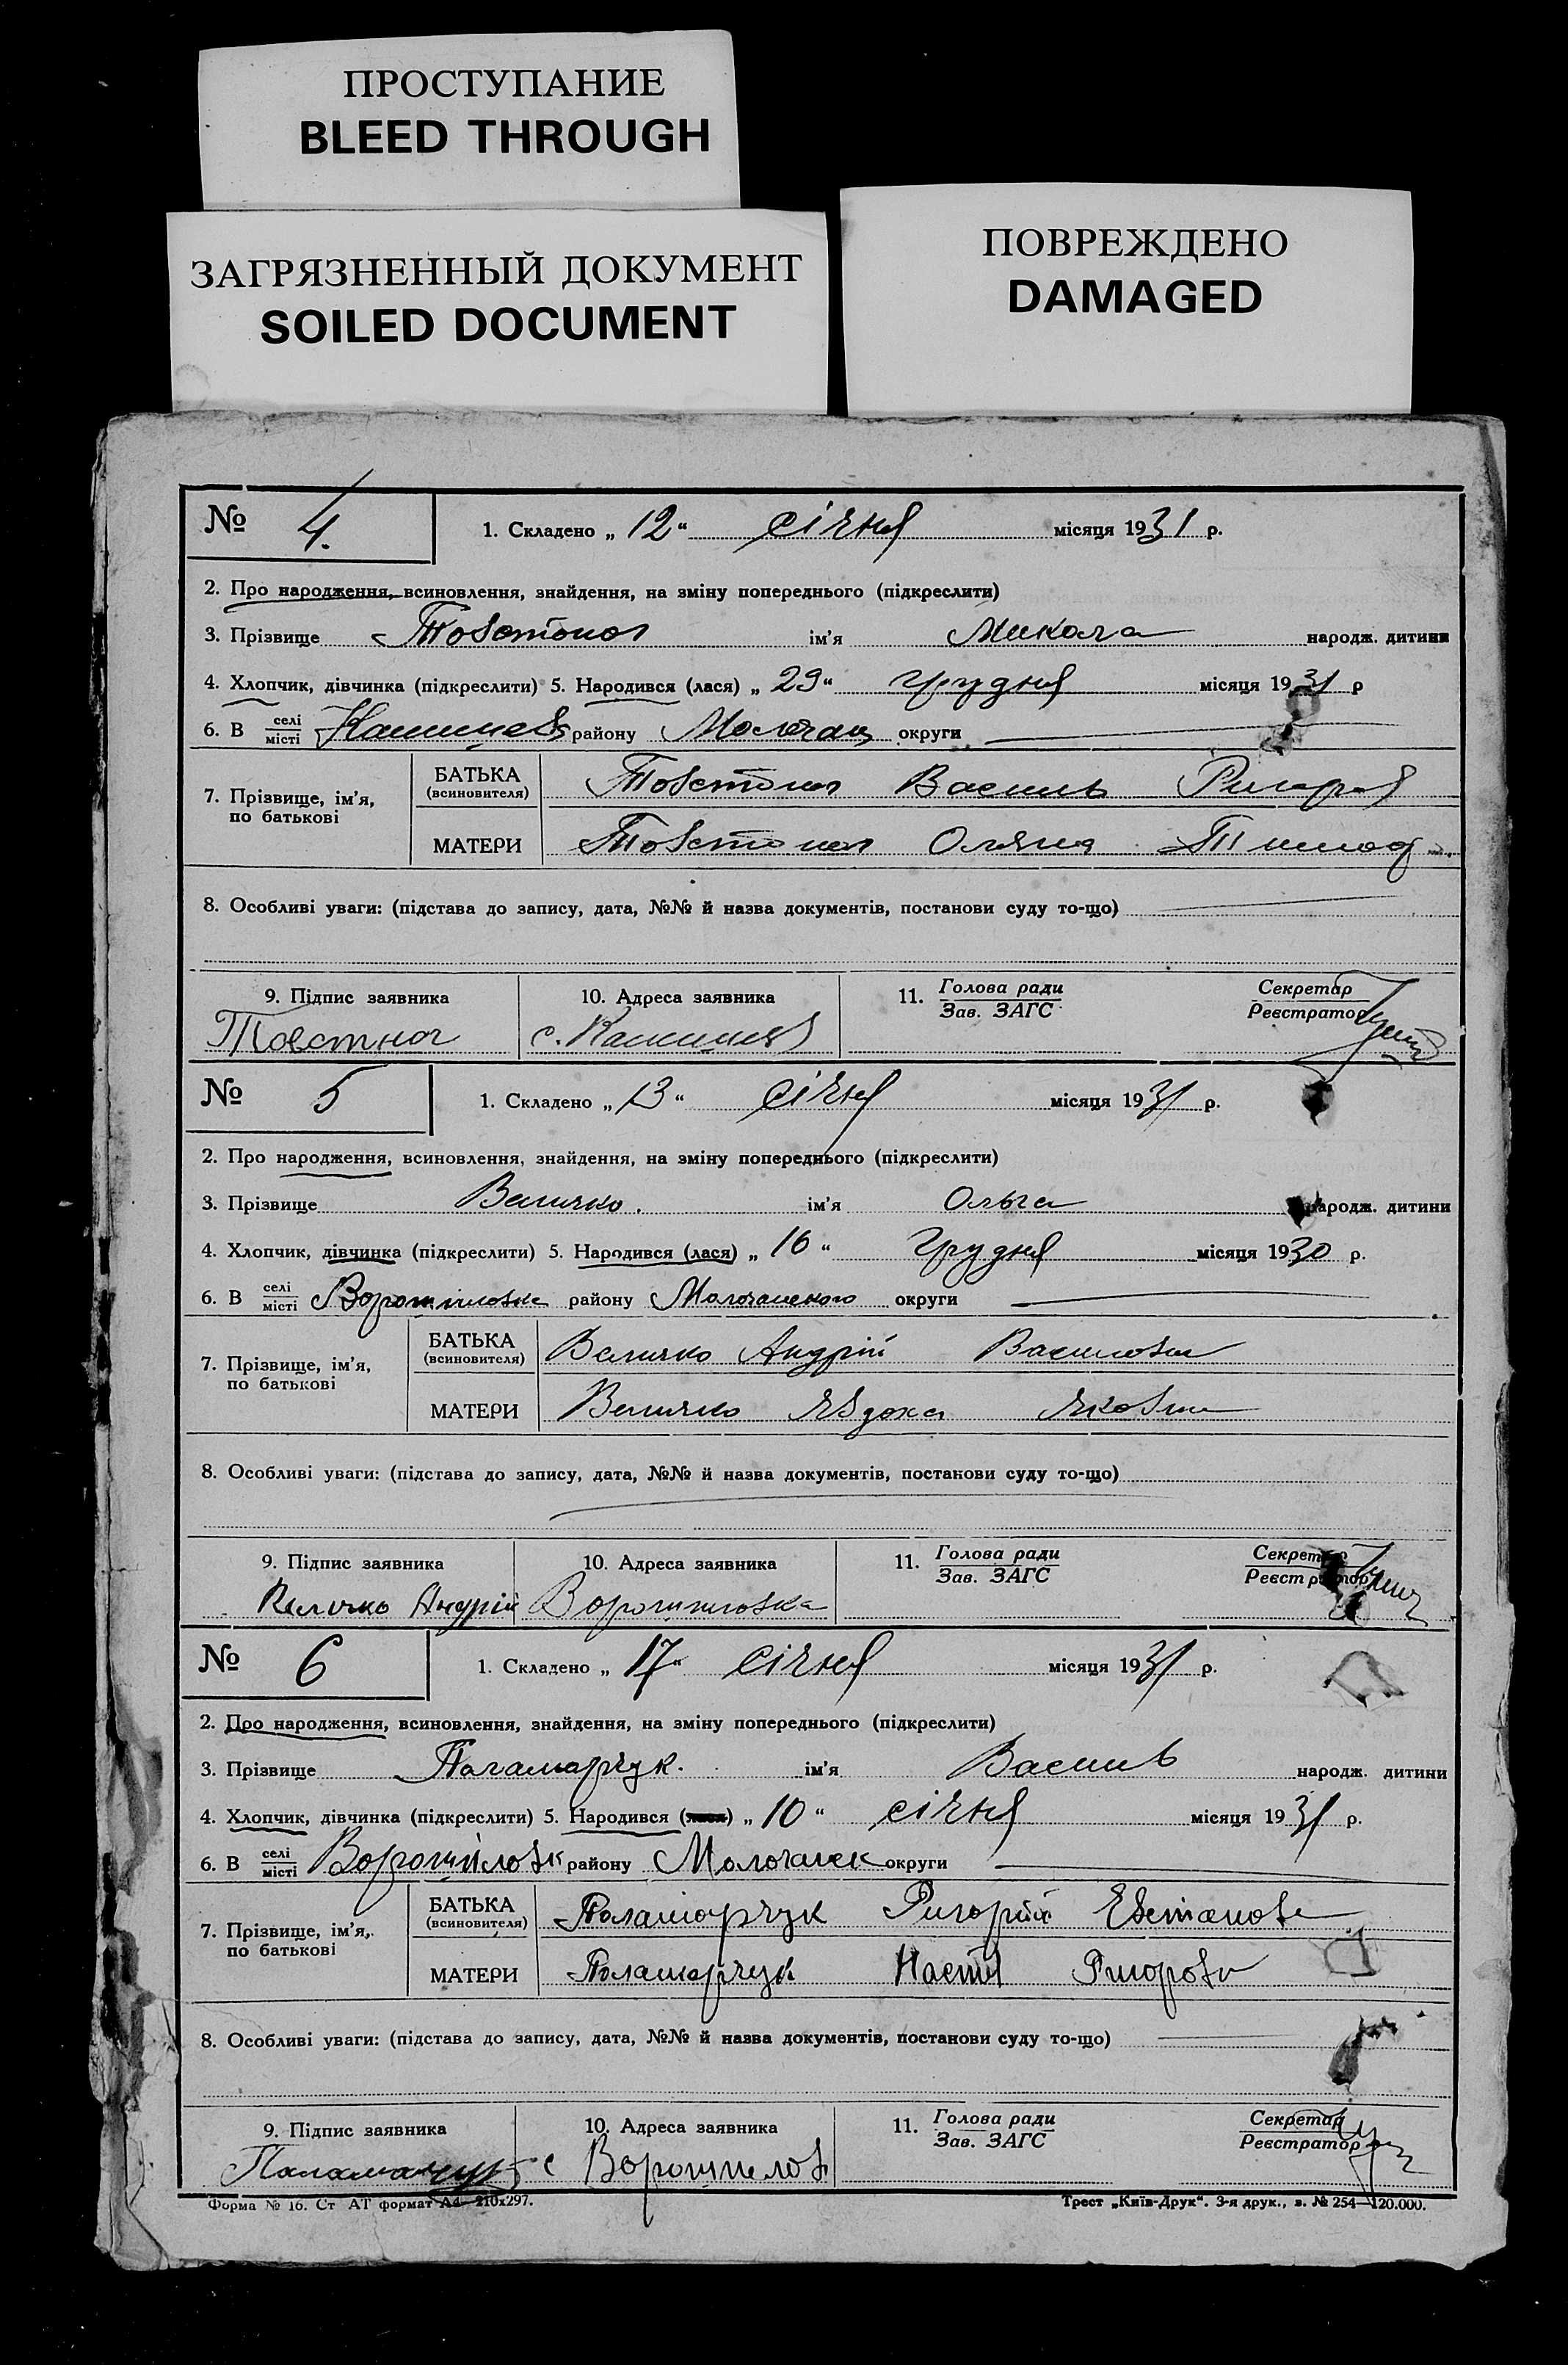 ПРОСТУПАНИЕ
BLEED THROUGH
ЗАГРЯЗНЕННЫЙ ДОКУМЕНТ
SOILED DOCUMENT
ПОВРЕЖДЕНО
DAMAGED
№ 4. 1. Складено „12“ січня місяця 1931 р.
2. Про народження, всиновлення, знайдення, на зміну попереднього (підкреслити)
3. Прізвище Товстоног ім'я Микола народж. дитини
4. Хлопчик, дівчинка (підкреслити) 5. Народився (лася) „29“ грудня місяця 1931 р
6. В селі/місті району Молочан округи
7. Прізвище, ім'я, по батькові БАТЬКА (всиновителя) Товстоног Василь
МАТЕРИ Товстоног Оляна
8. Особливі уваги: (підстава до запису, дата, №№ й назва документів, постанови суду то-що)
9. Підпис заявника 10. Адреса заявника 11. Голова ради/Зав. ЗАГС Секретар/Реєстратор
Товстног с.
№ 5 1. Складено „13“ січня місяця 1931 р.
2. Про народження, всиновлення, знайдення, на зміну попереднього (підкреслити)
3. Прізвище Величко. ім'я Ольга народж. дитини
4. Хлопчик, дівчинка (підкреслити) 5. Народився (лася) „16“ грудня місяця 1930 р.
6. В селі/місті Ворошиловка району Молочанского округи
7. Прізвище, ім'я, по батькові БАТЬКА (всиновителя) Величко Андрій Василови
МАТЕРИ Величко Явдоха Якови
8. Особливі уваги: (підстава до запису, дата, №№ й назва документів, постанови суду то-що)
9. Підпис заявника 10. Адреса заявника 11. Голова ради/Зав. ЗАГС Секретар/Реєстратор
Величко Андрій Ворошиловка
№ 6 1. Складено „17“ січня місяця 1931 р.
2. Про народження, всиновлення, знайдення, на зміну попереднього (підкреслити)
3. Прізвище Паламарчук. ім'я Василь народж. дитини
4. Хлопчик, дівчинка (підкреслити) 5. Народився (лася) „10“ січня місяця 1931 р.
6. В селі/місті Ворошиловк району Молочанск округи
7. Прізвище, ім'я, по батькові БАТЬКА (всиновителя) Паламарчук Григорій
МАТЕРИ Паламарчук Настя Григорови
8. Особливі уваги: (підстава до запису, дата, №№ й назва документів, постанови суду то-що)
9. Підпис заявника 10. Адреса заявника 11. Голова ради/Зав. ЗАГС Секретар/Реєстратор
Паламарчук с Ворошилов
Форма № 16. Ст АТ формат А4—210х297. Трест „Київ-Друк“. 3-я друк., з. № 254—120.000.